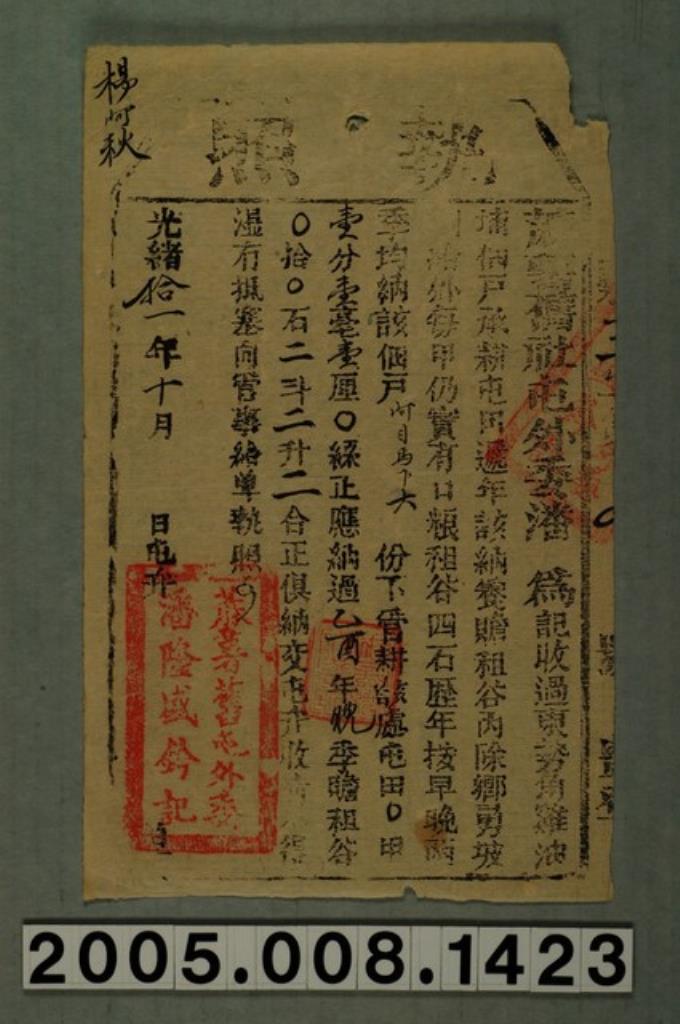 執照
蔴薯舊社屯外委潘 為記收過東勢角雞油
埔佃戶承耕屯田遞年該納養贍租谷內除鄉勇坡
外每甲仍實有口粮租谷四石歷年按早晚兩
季均納該佃戶阿目馬下六 份下管耕該處屯田〇甲
壹分壹毫壹厘〇絲正應納過乙酉年晚季贍租谷
〇拾〇石二斗二升二合正俱納交屯弁收
濕冇抵塞向管事給單執照
光緒拾一年十月 日屯弁
楊阿秋
蔴薯舊屯外委
潘隆盛鈐記
2005.008.1423